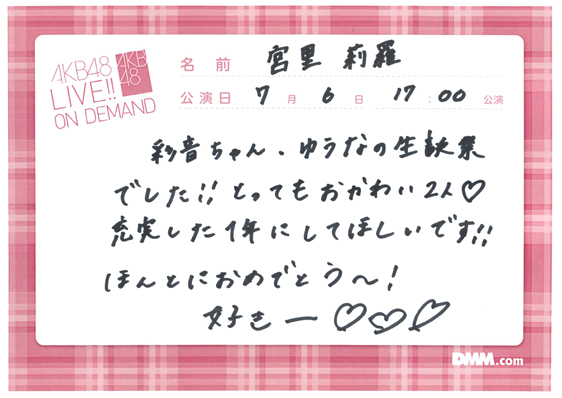 AKB48
LIVE!!
ON DEMAND
AKB
48
名前 宮里 莉羅
公演日 7月6日 17:00公演
彩音ちゃん、ゆうなの生誕祭
でした!! とってもおかわい2人♡
充実した1年にしてほしいです!!
ほんとにおめでとう〜!
好きー♡♡♡
DMM.com